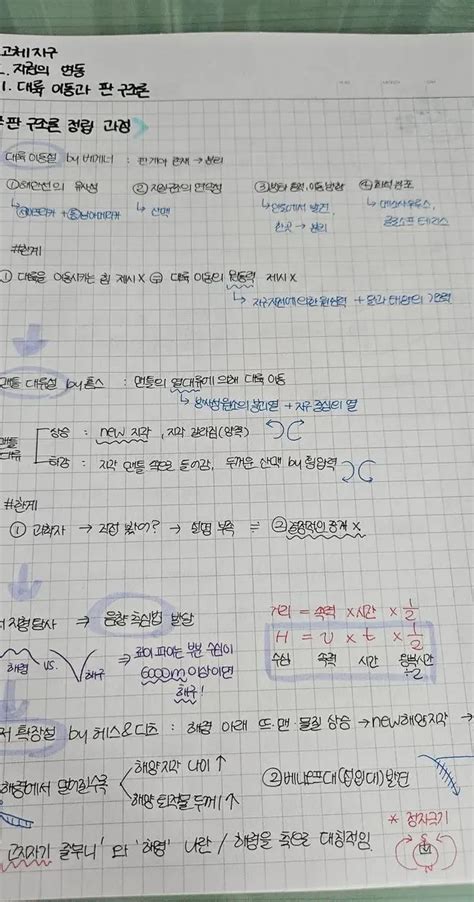 고체지구
지권의 변동
1. 대륙 이동과 판 구조론
판 구조론 정립 과정
대륙 이동설 by 베게너 : 판게아 존재 → 분리
① 해안선의 유사성 ② 지질구조의 연속성 ③ 빙하 흔적, 이동 방향 ④ 화석 분포
↳ 산맥 ↳ 인도에서 발견, ↳ 메소사우루스,
한곳 → 분리 글로소프테리스
#한계
① 대륙을 이동시키는 힘 제시X = 대륙 이동의 원동력 제시X
↳ 지구 자전에 의한 원심력 + 달과 태양의 기조력
맨틀 대류설 by 홈스 : 맨틀의 열대류에 의해 대륙 이동
↳ 방사성 원소의 붕괴열 + 지구 중심의 열
맨틀 대류
상승 : new 지각, 지각 갈라짐(장력)
하강 : 지각 맨틀 속으로 들어감, 두꺼운 산맥 by 횡압력
#한계
① 과학자 → 직접 봤어? → 설명 부족 = ② 결정적인 증거 X
저 지형 탐사 ⇒ 음향 측심법 발달
거리 = 속력 × 시간 × 1/2
H = v × t × 1/2
수심 속력 시간 왕복시간 ÷2
해령 vs. 해구 ⇒ 깊이 파이는 부분 수심이
6000m 이상이면
해구!
저 확장설 by 헤스&디츠 : 해령 아래 뜨·맨·물질 상승 → new 해양지각 →
해령에서 멀어질수록 해양지각 나이↑
해양 퇴적물 두께↑
② 베니오프대(섭입대) 발견
고지자기 줄무늬'와 '해령' 나란 / 해령을 축으로 대칭적임
* 정자극기